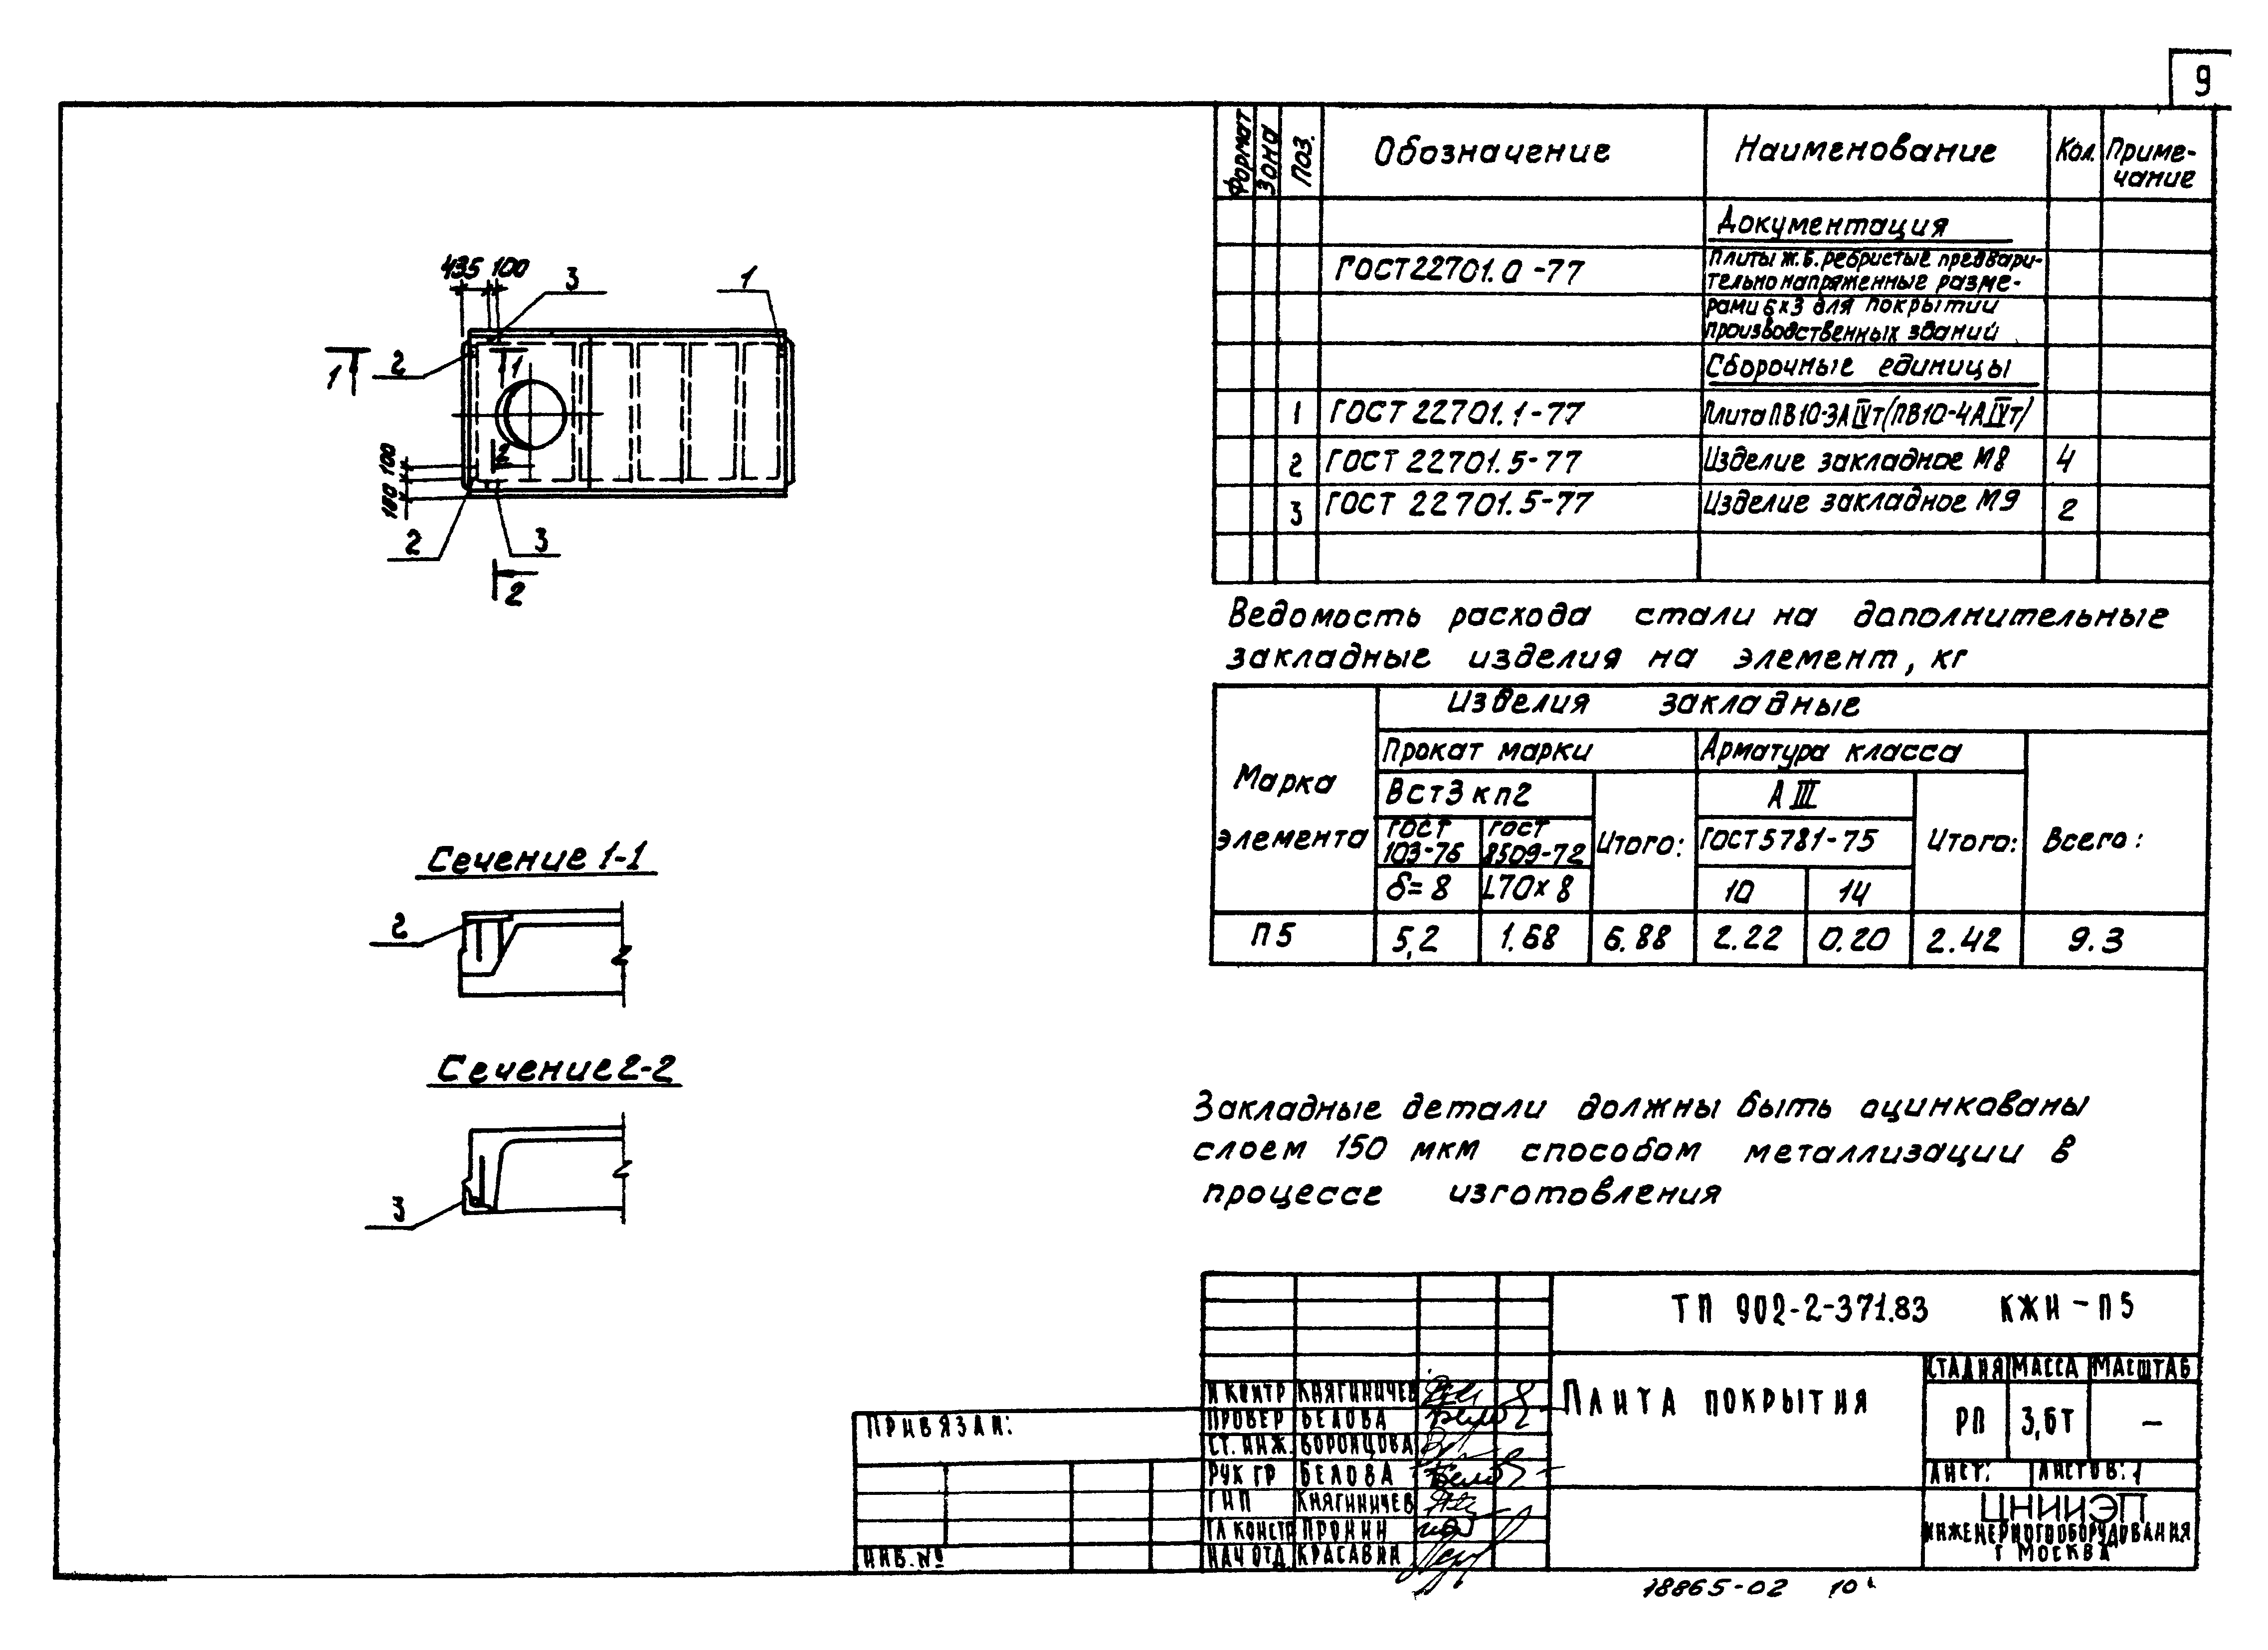 9
Формат Зона Поз. Обозначение Наименование Кол. Приме-
чание
Документация
ГОСТ 22701.0-77 Плиты ж.б. ребристые предвари-
тельно напряженные разме-
рами 6х3 для покрытии
производственных зданий
Сборочные единицы
1 ГОСТ 22701.1-77 Плита ПВ10-3АIVт (ПВ10-4АIVт)
2 ГОСТ 22701.5-77 Изделие закладное М8 4
3 ГОСТ 22701.5-77 Изделие закладное М9 2
435 100 3 1
2
1 1
100
180
2
2 3
2
Ведомость расхода стали на дополнительные
закладные изделия на элемент, кг
Марка
элемента
Изделия закладные
Прокат марки Арматура класса
Вст3кп2 АIII
ГОСТ
103-76
ГОСТ
8509-72
Итого: ГОСТ 5781-75 Итого: Всего:
δ=8 L70х8 10 14
П5 5,2 1.68 6.88 2.22 0.20 2.42 9.3
Сечение 1-1
2
Сечение 2-2
3
Закладные детали должны быть оцинкованы
слоем 150 мкм способом металлизации в
процессе изготовления
ТП 902-2-371.83 КЖИ-П5
Плита покрытия
СТАДИЯ МАССА МАСШТАБ
РП 3,6т —
ЛИСТ: ЛИСТОВ: 1
ЦНИИЭП
ИНЖЕНЕРНОГО ОБОРУДОВАНИЯ
Г МОСКВА
Н КОНТР КНЯГИНИЧЕВ
ПРОВЕР БЕЛОВА
СТ. ИНЖ. ВОРОНЦОВА
РУК ГР БЕЛОВА
ГИП КНЯГИНИЧЕВ
ГЛ КОНСТР ПРОНИН
НАЧ ОТД КРАСАВИН
ПРИВЯЗАН:
ИНВ. №
18865-02 10